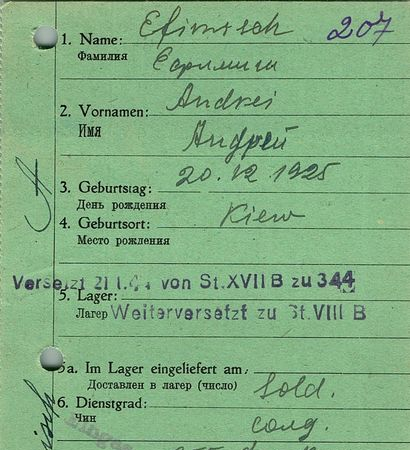 207
1. Name: Efimisch
Фамилия
2. Vornamen: Andrei
Имя Андрей
3. Geburtstag: 20.12.1925
День рождения
4. Geburtsort: Kiew
Место рождения
Versetzt 21 1.44 von St.XVII B zu 344
5. Lager:
Лагер Weiterversetzt zu St.VIII B
5a. Im Lager eingeliefert am:
Доставлен в лагер (число)
6. Dienstgrad: Sold.
Чин солд.